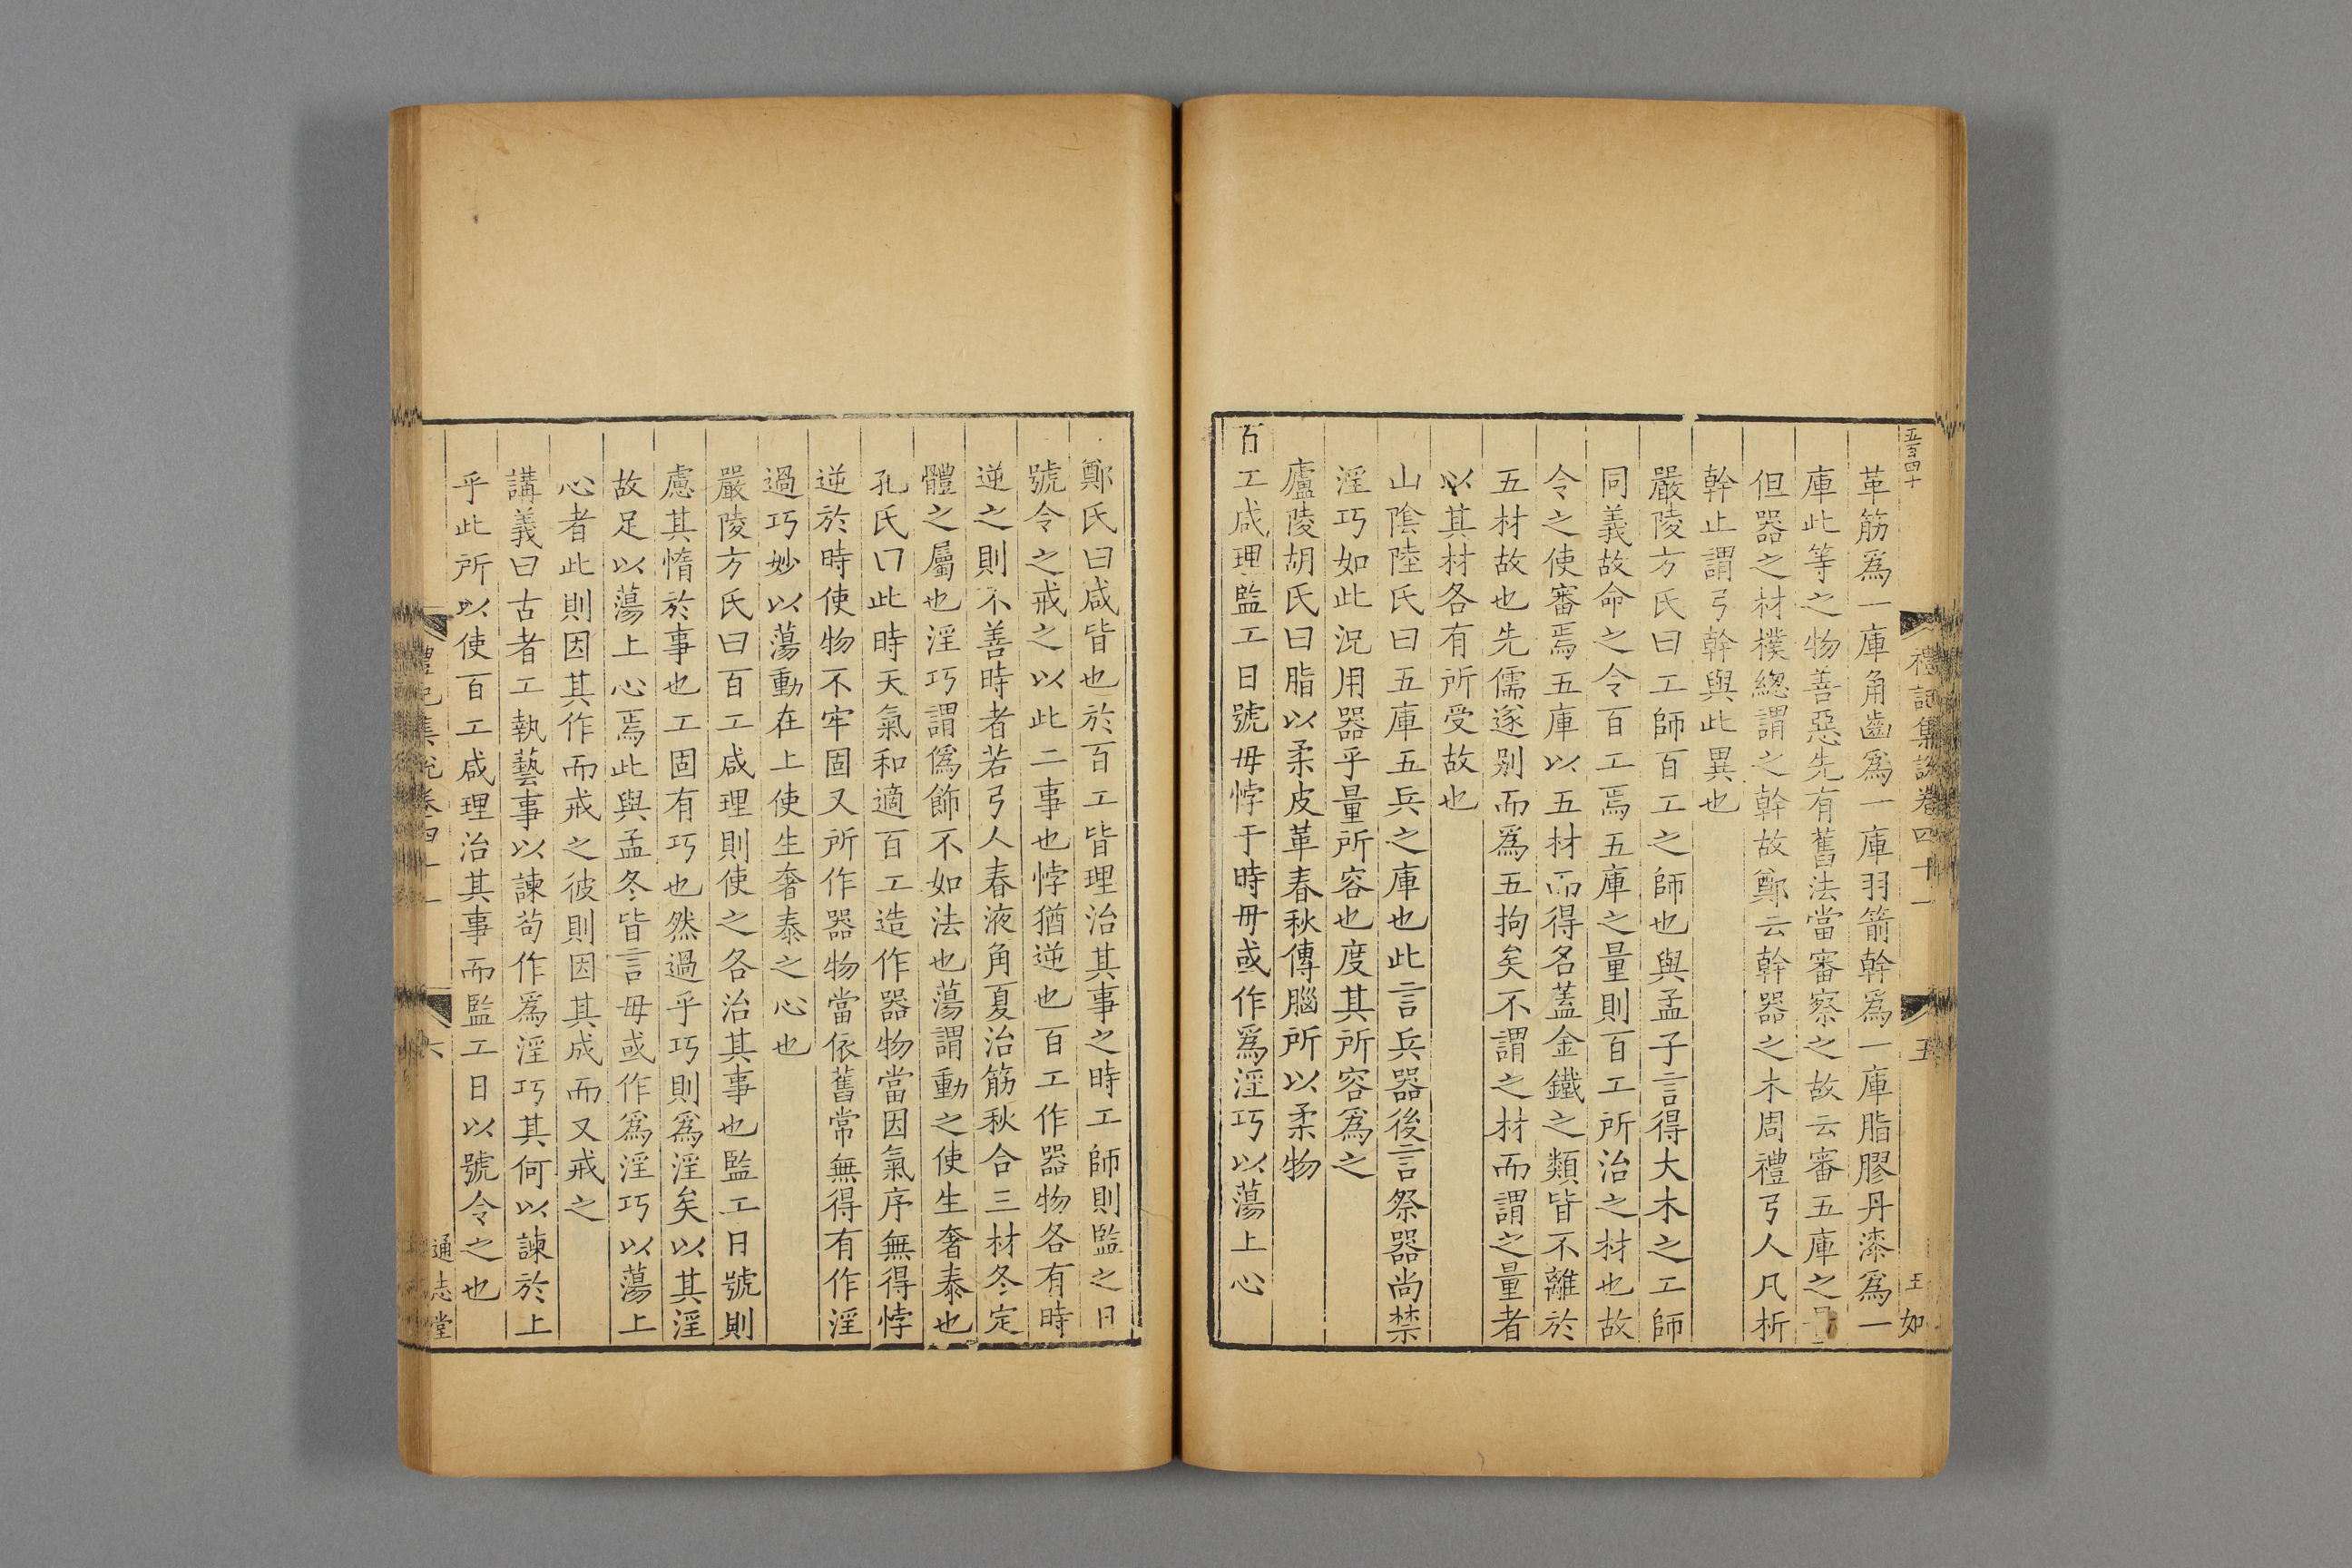 五百四十
禮記集說卷四十一
五
王如
革筋爲一庫角齒爲一庫羽箭幹爲一庫脂膠丹漆爲一
庫此等之物善惡先有舊法當審察之故云審五庫之
但器之材樸總謂之幹故鄭云幹器之木周禮弓人凡析
幹止謂弓幹與此異也
嚴陵方氏曰工師百工之師也與孟子言得大木之工師
同義故命之令百工焉五庫之量則百工所治之材也故
令之使審焉五庫以五材而得名蓋金鐵之類皆不離於
五材故也先儒遂别而爲五拘矣不謂之材而謂之量者
以其材各有所受故也
山陰陸氏曰五庫五兵之庫也此言兵器後言祭器尚禁
淫巧如此況用器乎量所容也度其所容爲之
廬陵胡氏曰脂以柔皮革春秋傳腦所以柔物
百工咸理監工日號毋悖于時毋或作爲淫巧以蕩上心
鄭氏曰咸皆也於百工皆理治其事之時工師則監之日
號令之戒之以此二事也悖猶逆也百工作器物各有時
逆之則不善時者若弓人春液角夏治筋秋合三材冬定
體之屬也淫巧謂僞飾不如法也蕩謂動之使生奢泰也
孔氏曰此時天氣和適百工造作器物當因氣序無得悖
逆於時使物不牢固又所作器物當依舊常無得有作淫
過巧妙以蕩動在上使生奢泰之心也
嚴陵方氏曰百工咸理則使之各治其事也監工日號則
慮其惰於事也工固有巧也然過乎巧則爲淫矣以其淫
故足以蕩上心焉此與孟冬皆言毋或作爲淫巧以蕩上
心者此則因其作而戒之彼則因其成而又戒之
講義曰古者工執藝事以諫苟作爲淫巧其何以諫於上
乎此所以使百工咸理治其事而監工日以號令之也
禮記集說卷四十一
六
通志堂